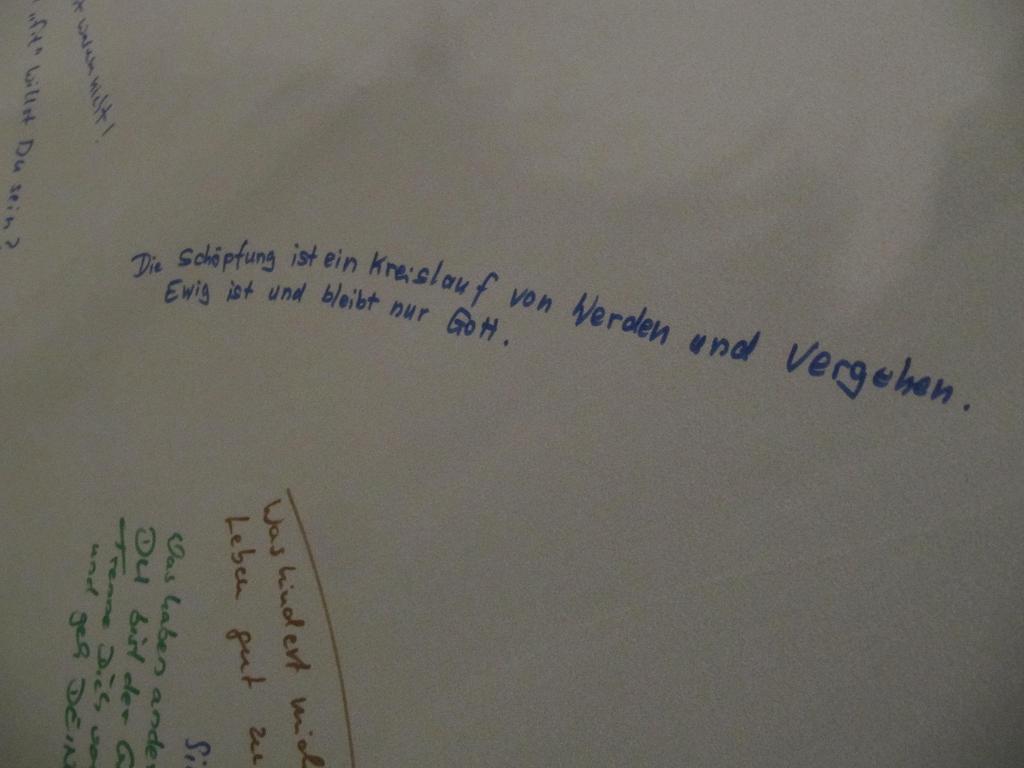 warum nicht!
"fit" willst Du sein?
Die Schöpfung ist ein Kreislauf von Werden und Vergehen.
Ewig ist und bleibt nur Gott.
Was hindert mich
Leben gut zu
Was haben ander
DU bist der
Trenne Dich von
und geh DEIN